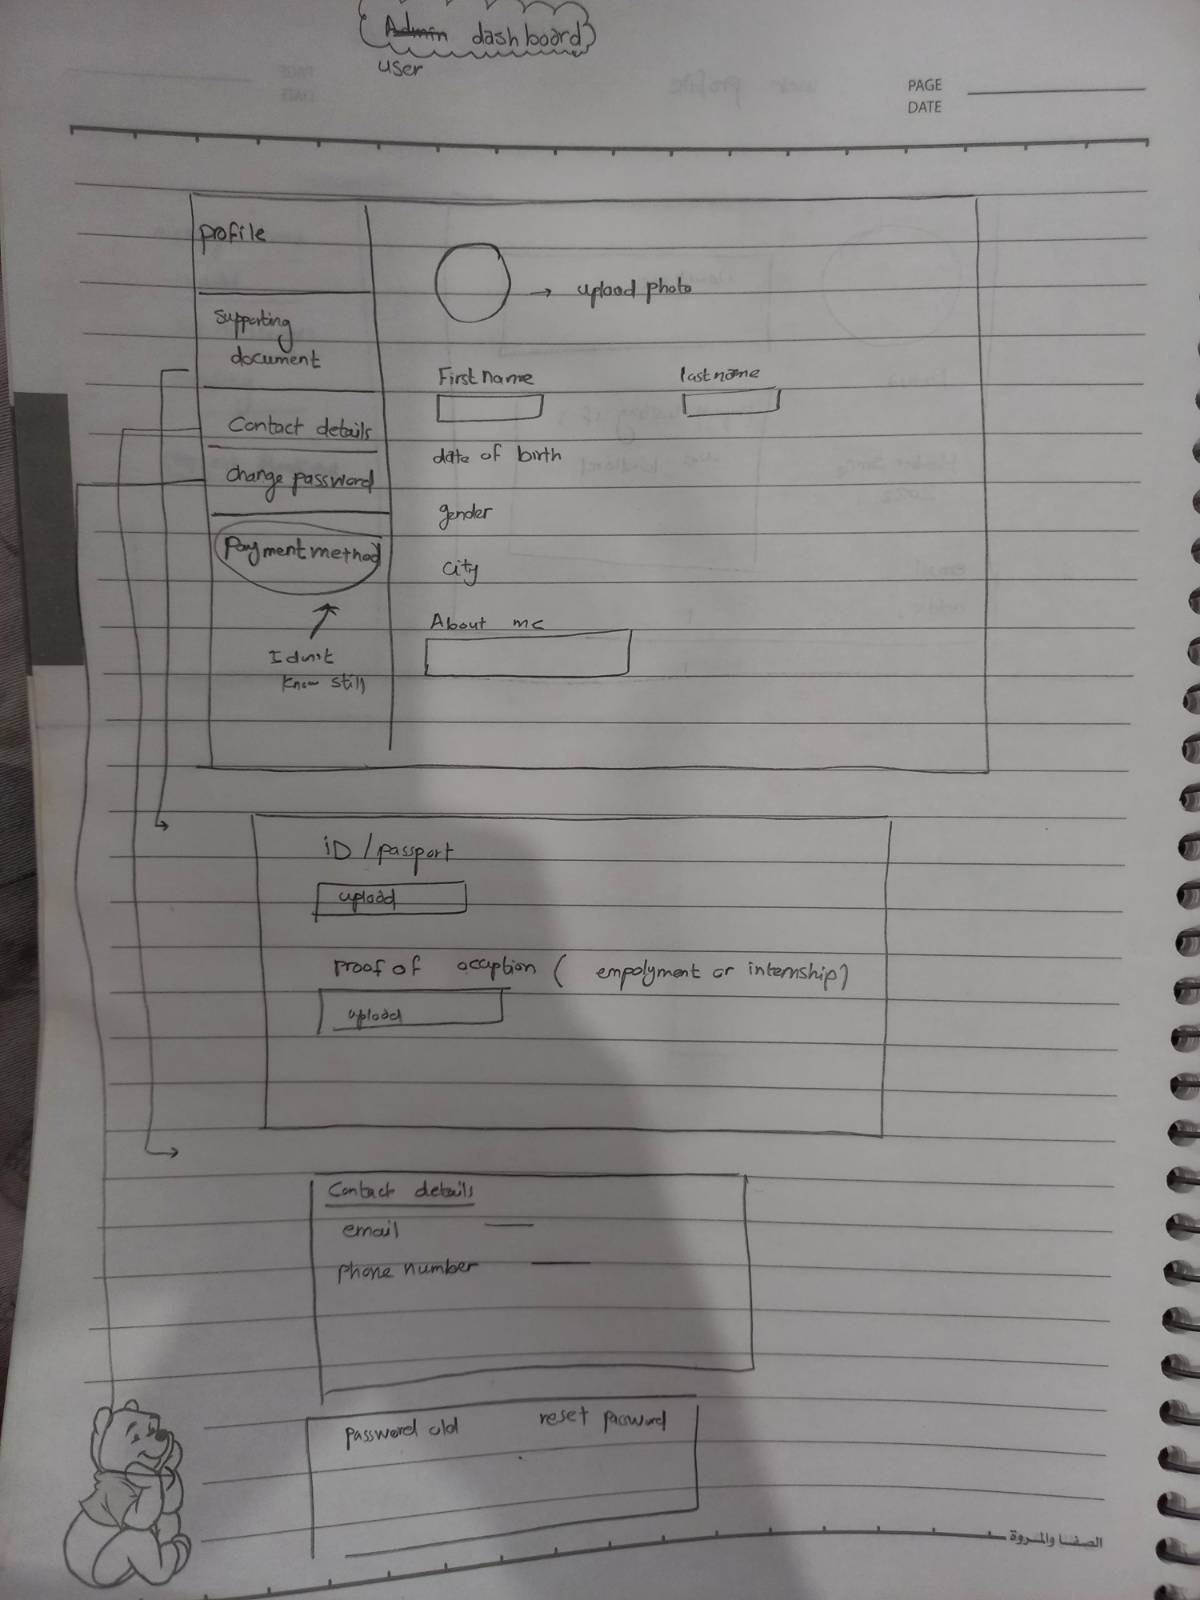 Admin dashboard
user
PAGE
DATE
profile
Supporting
document
Contact details
change password
Payment method
I dont
know still
upload photo
First name
last name
date of birth
gender
city
About me
iD / passport
upload
proof of occuption ( empolyment or internship)
upload
Contact details
email
phone number
password old
reset password
الصفا والمروة